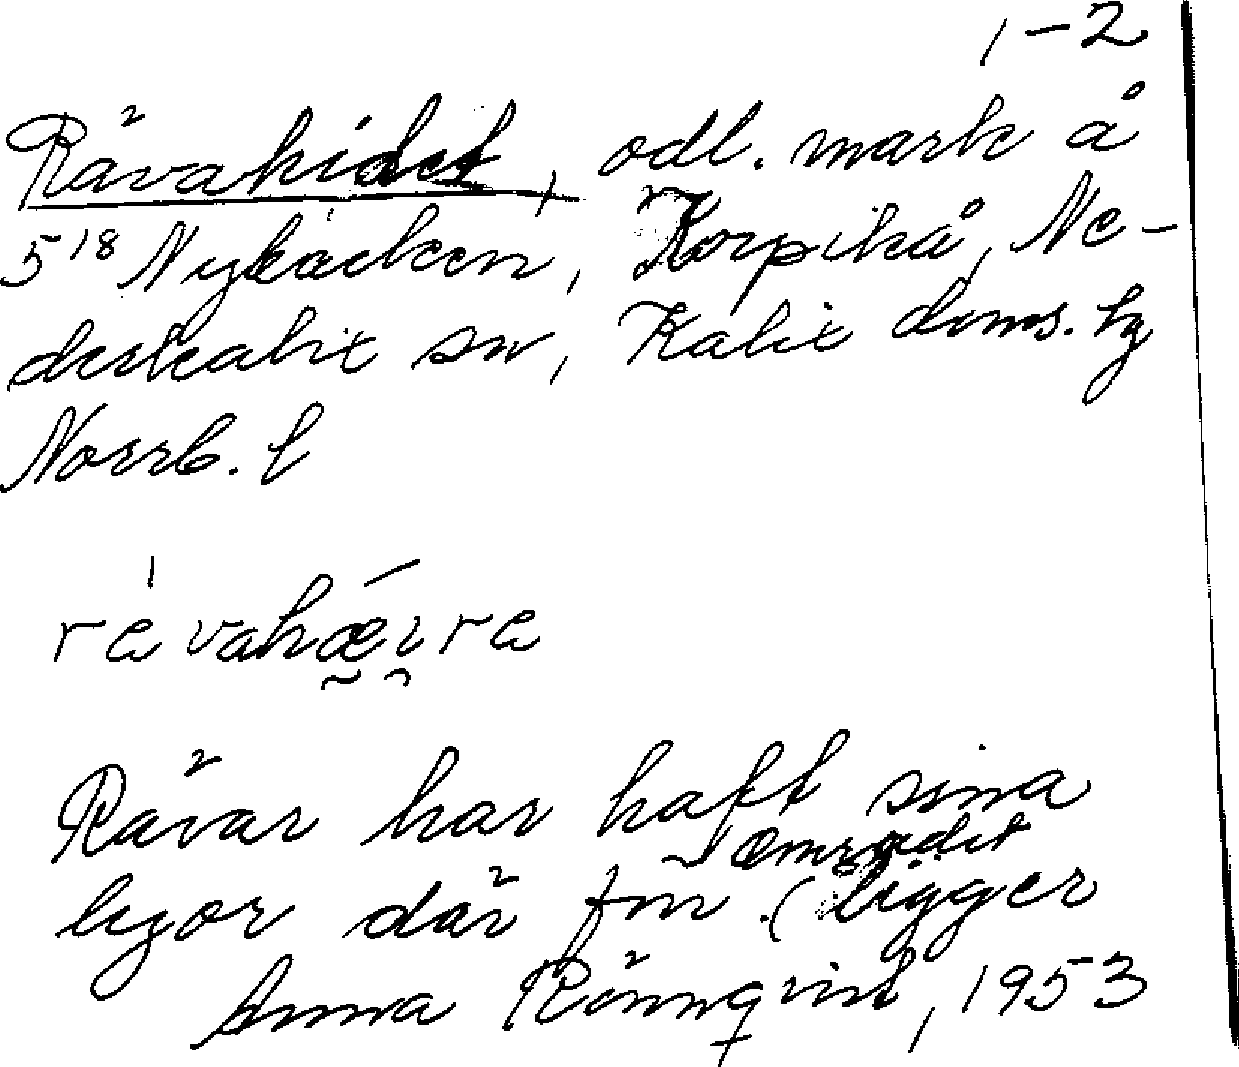 1-2
Rävahidet, odl. mark å
5¹⁸ Nybäcken, Korpikå, Ne-
derkalix sn, Kalix doms. hg
Norrb. l
Rävar har haft sina
lyor där fm. Området ligger
Anna Rönnqvist, 1953